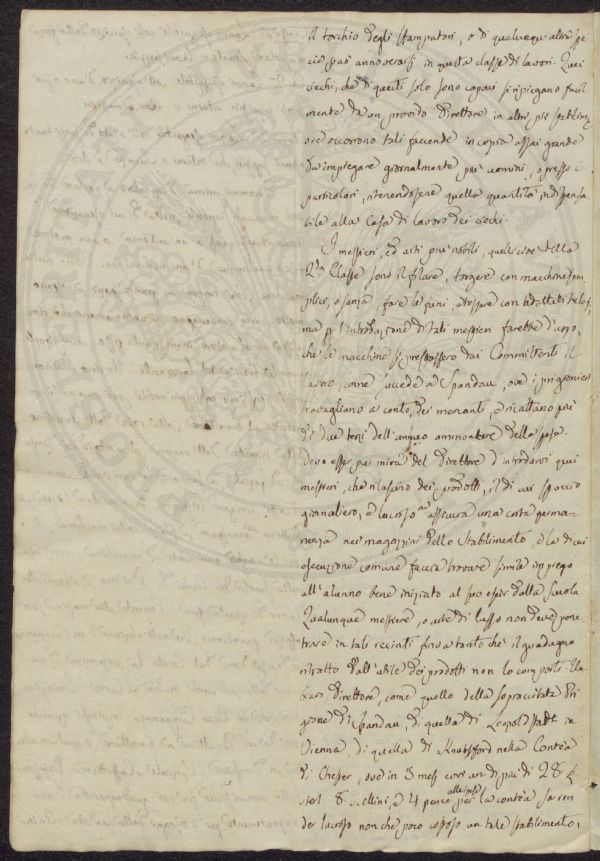 il torchio degli stampatori, o di qualunque altra spe
cie può annoverarsi in questa classe di lavori. Quei
ciechi, che di questi solo sono capaci s'impiegano facil
mente da un provvido Direttore in altri più
ove occorrono tali faccende in copia assai grande
da impiegare giornalmente più uomini, o presso i
particolari, ritenendosene quella quantità indispensa
bile alla Casa di lavoro dei ciechi.
I mestieri, ed arti più nobili, quelli cioè della
2.da Classe sono il filare, torcere con macchine sem
plici, o senza, fare le funi, tessere con
ma p l'introduzione di tali mestieri farebbe d'uopo,
che le macchine si prestassero dai Committenti il
lavoro, come succede a Spandau, ove i prigionieri
travagliano a conto dei mercanti, e ricattano più
di due terzi dell'annuo ammontare delle spese.
Deve esser pur mira del Direttore d'introdurvi quei
mestieri, che rilasciano dei prodotti, il di cui spaccio
giornaliero, e lucroso ne assicura una corta perma=
nenza nei magazzini dello Stabilimento, e la di cui
esecuzione comune faccia trovare simile impiego
all'alunno bene iniziato al suo escir dalla Scuola
Qualunque mestiere, o arte di lusso non deve pene
trare in tali recinti fino a tanto che il guadagno
ritratto dall'utile dei prodotti non lo comporti.
Direttore, come quello della sopraccitata Pri
gione di Spandau, di quella di Leopoldstadt in
Vienna, di quella di Knutsford nella Contea
di Chester, ove in 3 mesi di più di 28 £
sterl 8 Scellini, e 4 pence alle spese per la contea
der lucroso non che poco costoso un tale stabilimento,